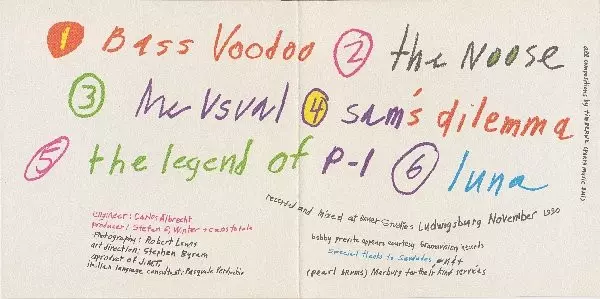 1 Bass Voodoo 2 the Noose
3 The Usual 4 sam's dilemma
5 the legend of P-1 6 luna
all compositions by
engineer: Carlos Albrecht
producer: Stefan F. Winter +
Photography: Robert Lewis
art direction: Stephen Byram
a product of JMT
italian language consultant: Pasquale
recorded and mixed at Bauer Studios Ludwigsburg November 1990
bobby previte appears courtesy Gramavision records
Special thanks to
(pearl drums) Marburg for their kind services